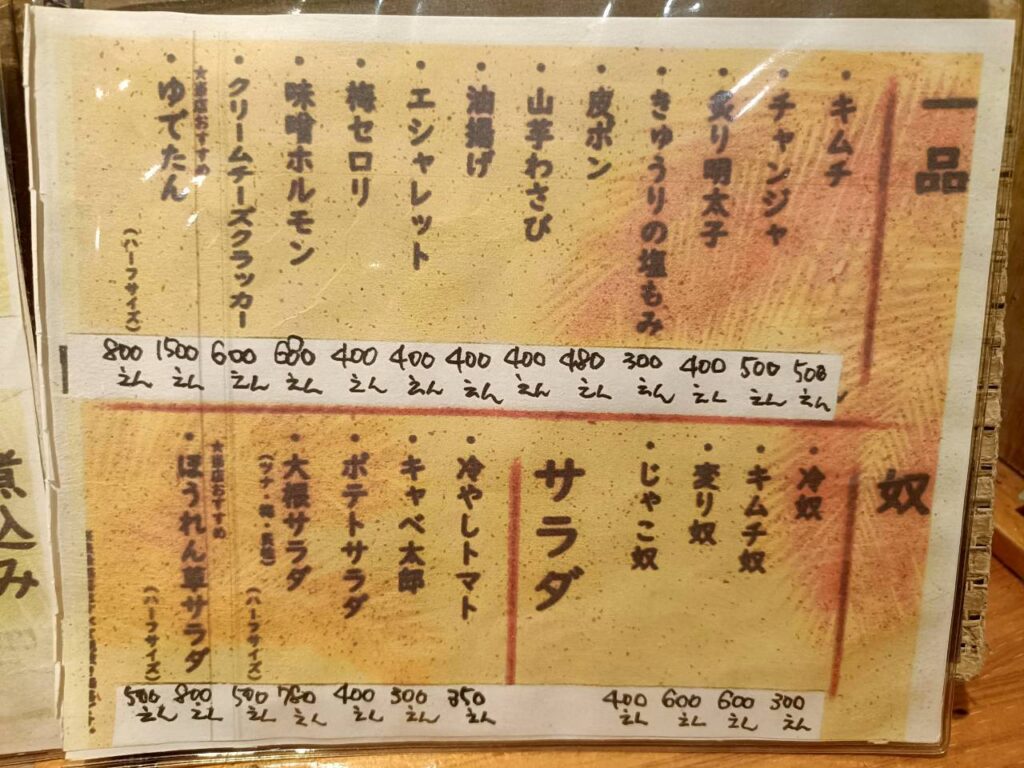 一品
・キムチ
・チャンジャ
・炙り明太子
・きゅうりの塩もみ
・皮ポン
・山芋わさび
・油揚げ
・エシャレット
・梅セロリ
・味噌ホルモン
・クリームチーズクラッカー
★当店おすすめ
・ゆでたん
(ハーフサイズ)
500えん
500えん
400えん
300えん
480えん
400えん
400えん
400えん
400えん
680えん
600えん
1500えん
800えん
奴
・冷奴
・キムチ奴
・変り奴
・じゃこ奴
300えん
600えん
600えん
400えん
サラダ
・冷やしトマト
・キャベ太郎
・ポテトサラダ
・大根サラダ
(ハーフサイズ)
★当店おすすめ
・ほうれん草サラダ
(ハーフサイズ)
350えん
300えん
400えん
780えん
500えん
800えん
500えん
煮込み